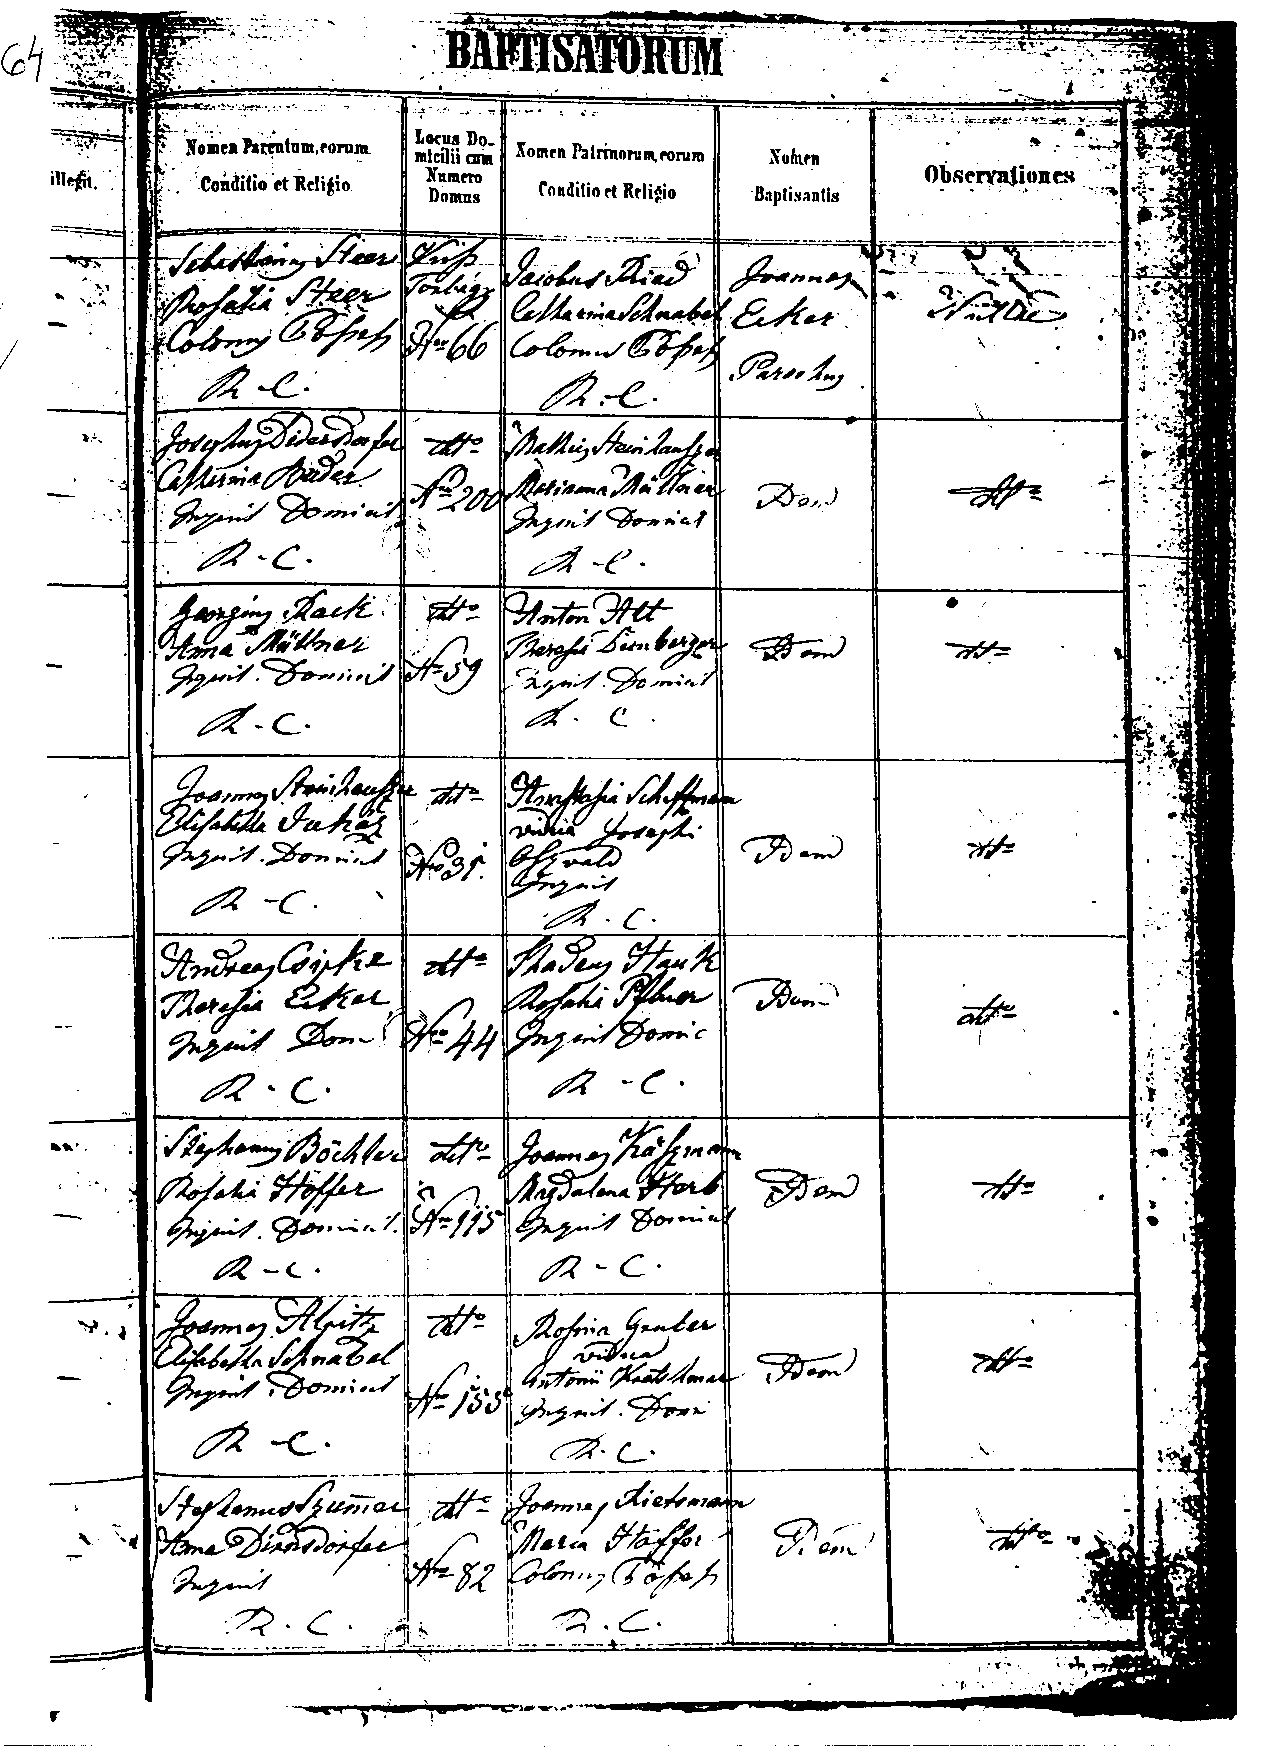 64
BAPTISATORUM
illegit.
Nomen Parentum, eorum
Conditio et Religio
Locus Do-
micilii cum
Numero
Domus
Nomen Patrinorum, eorum
Conditio et Religio
Nomen
Baptisantis
Observationes
Sebastianus Steer
Rosalia Steer
Colonus
R - C.
Kiss
No 66
Jacobus
Catharina Schnabel
Colonus
R - C.
Joannes
Ecker
Parochus
Josephus
Catharina
Inquil Domicil
R - C.
dtto
No 200
Mathias Steinhauszer
Marianna Müllner
Inquil Domicil
R - C.
Idem
dtto
Georgius Rack
Anna Müllner
Inquil. Domicil
R - C.
dtto
No 59
Anton Alt
Theresia Dernberger
Inquil. Domicil
R. C.
Idem
dtto
Joannes Steinhauszer
Elisabetha
Inquil. Domicil
R - C.
dtto
Anastasia Schiffmann
vidua Josephi
Oszwald
Inquil
R. C.
Idem
dtto
Andreas Csipke
Theresia Ecker
Inquil Dom
R - C.
dtto
No 44
Thadeus Hauk
Rosalia
Inquil Domic
R - C.
Idem
dtto
Stephanus Böchler
Rosalia Höffer
Inquil. Domicil.
R - C.
dtto
No 115
Joannes Käszmann
Magdalena Herb
Inquil Domicil
R - C.
Idem
dtto
Joannes Alpitz
Elisabetha Schnabel
Inquil. Domicil
R - C.
dtto
No 155
Rosina Gruber
vidua
Antonii
Inquil. Domi
R. C.
Idem
dtto
Stephanus
Anna Diensdorfer
Inquil
R. C.
dtto
No 82
Joannes Rietzmann
Maria Höffer
Colonus
R. C.
Idem
dtto